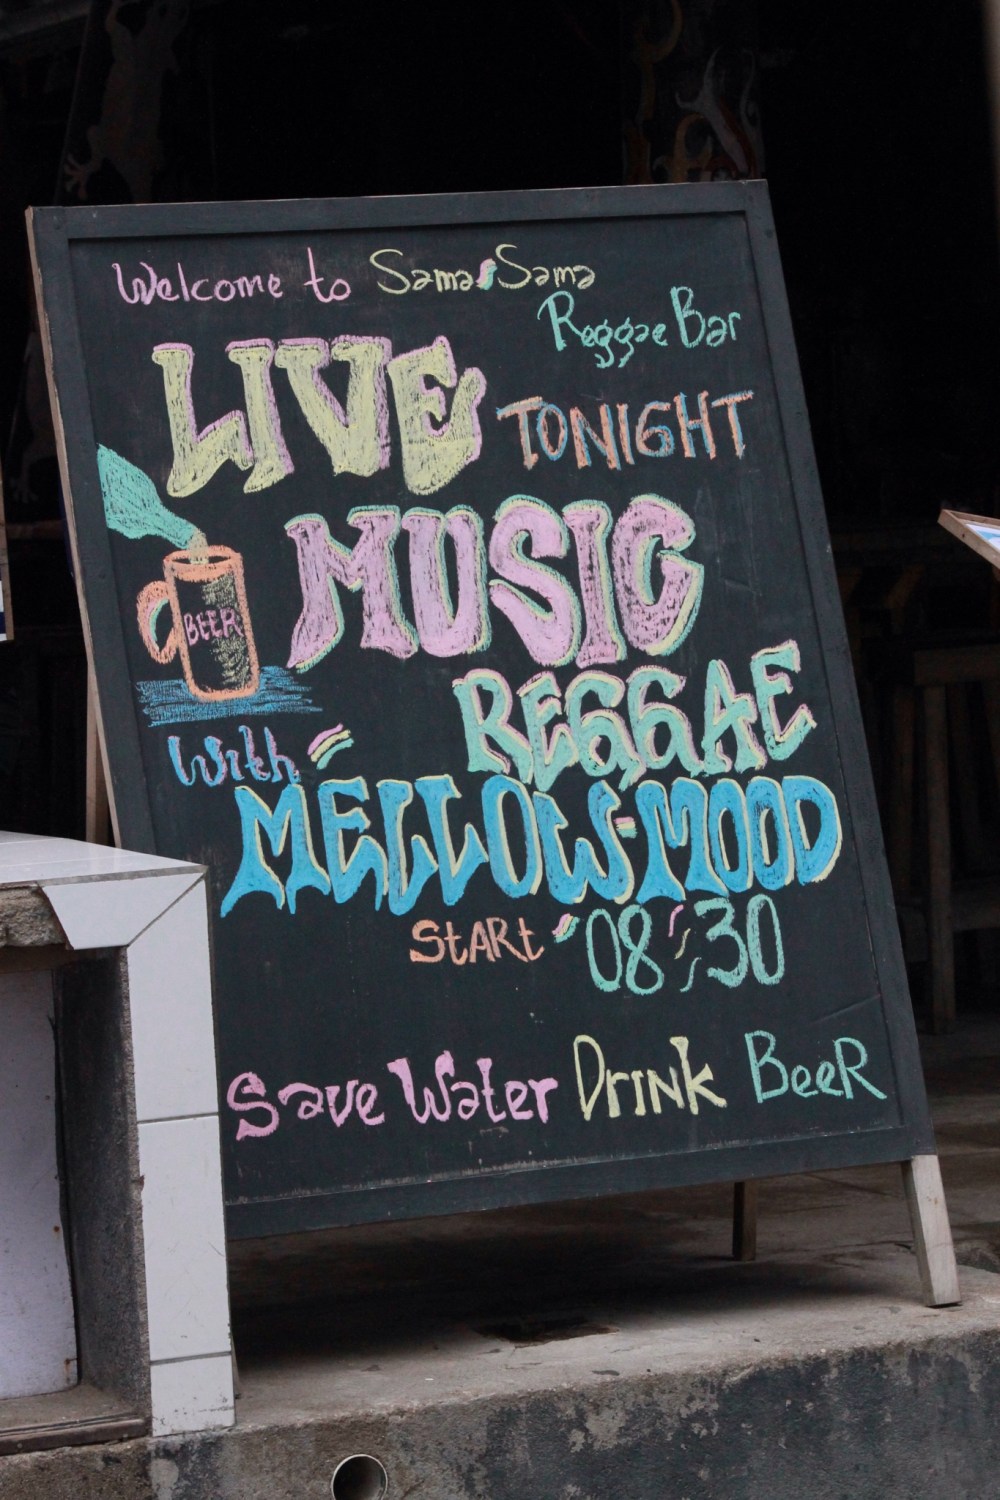 Welcome to Sama Sama
Reggae Bar
LIVE TONIGHT
MUSIC
BEER
REGGAE
With
MELLOW-MOOD
START 08:30
Save Water Drink BeeR